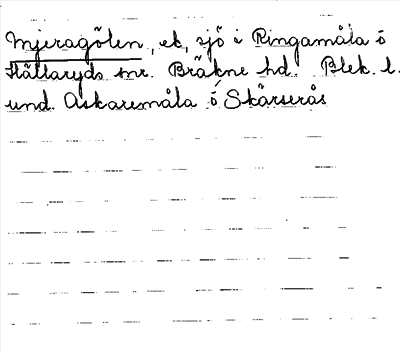 Mjeragölen, ek, sjö i Ringamåla o
Hällaryds snr. Bräkne hd. Blek. l.
und. Askaremåla o Skärserås